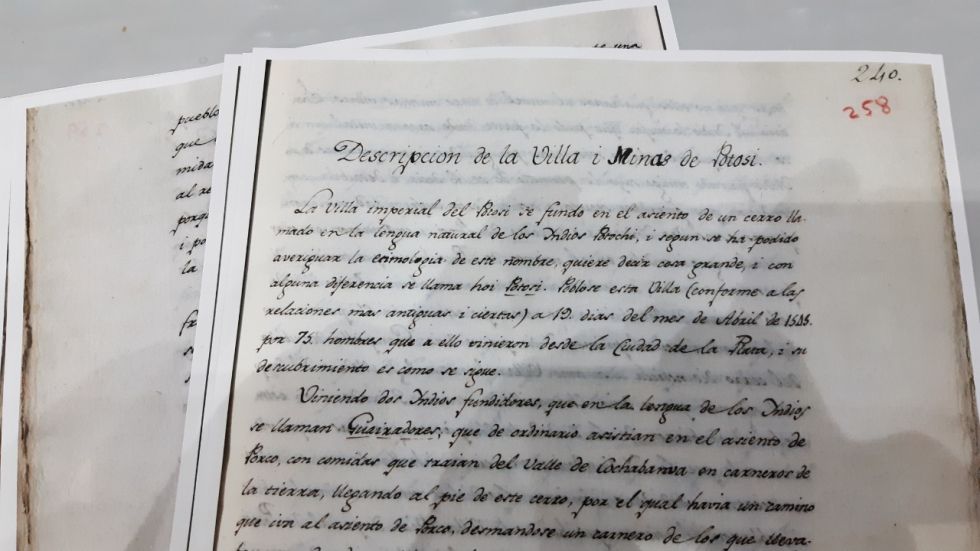 240.
258
Descripcion de la Villa i Minas de Potosi.
La Villa imperial del Potosi se fundo en el asiento de un cerro lla-
mado en la lengua natural de los Indios Potochi, i segun se ha podido
averiguar la etimologia de este nombre, quiere decir cosa grande, i con
alguna diferencia se llama hoi Potosi. Poblose esta Villa (conforme a las
relaciones mas antiguas i ciertas) a 19. dias del mes de Abril de 1545.
por 75. hombres que a ello vinieron desde la Ciudad de la Plata, i su
descubrimiento es como se sigue.
Viniendo dos Indios fundidores, que en la lengua de los Indios
se llaman Guairadores, que de ordinario asistian en el asiento de
Porco, con comidas que traian del Valle de Cochabanva en carneros de
la tierra, llegando al pie de este cerro, por el qual havia un camino
que iva al asiento de Porco, desmandose un carnero de los que lleva-
una
pueblo
que
mida
al re
porq
i po
la